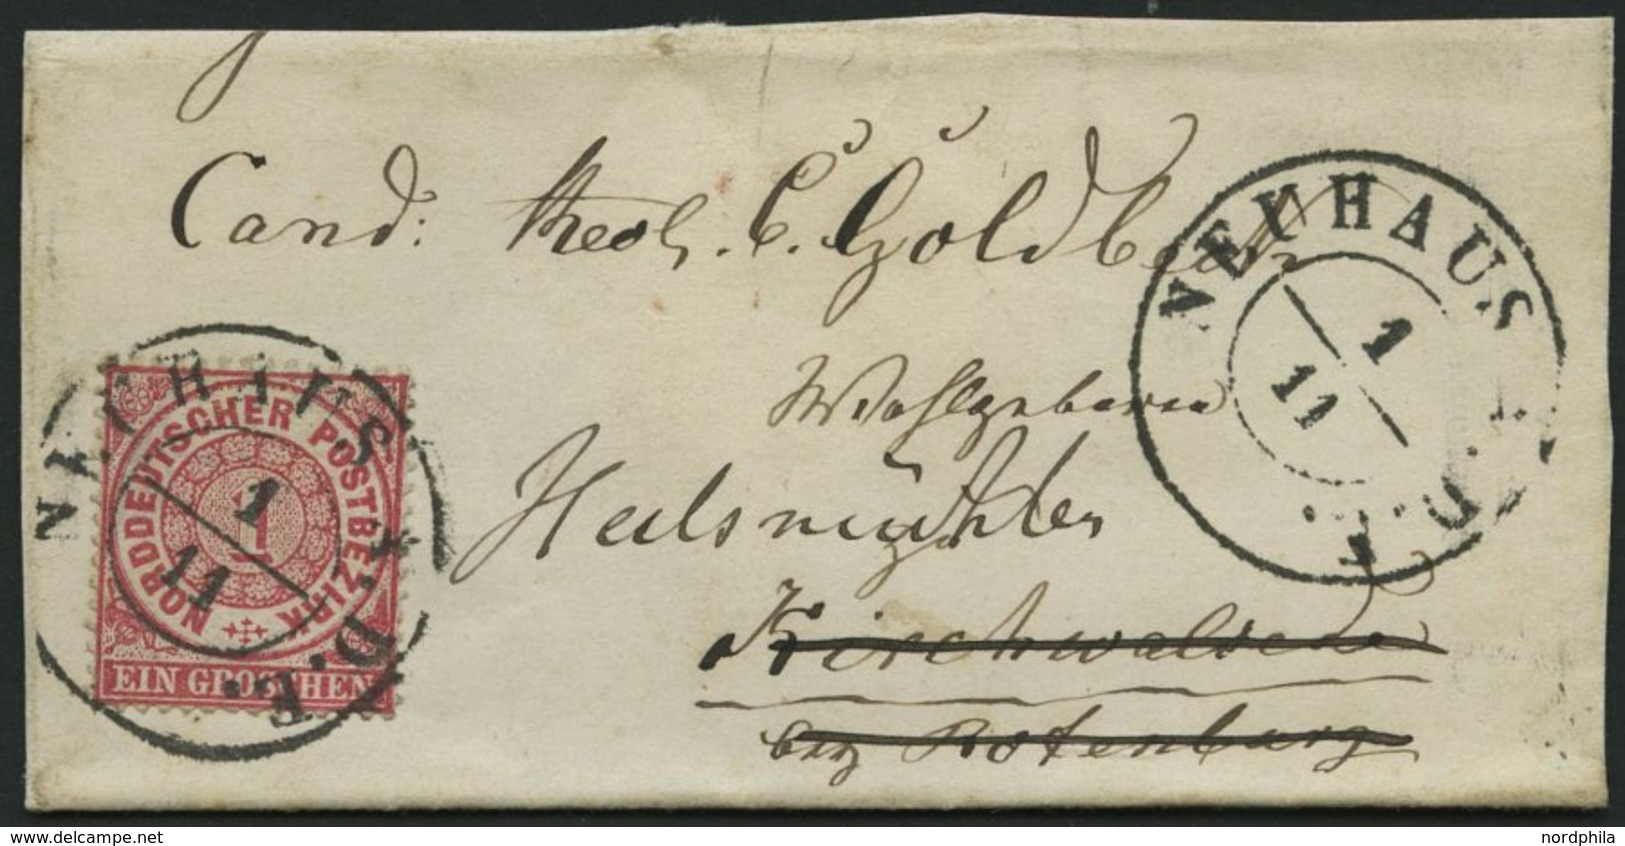 Cand: theol. C. Goldbeck
Wohlgeboren
Kirchwalsede
bey Rotenburg
NEUHAUS A. D. E.
1
11
NEUHAUS A. D. E.
1
11
NORDDEUTSCHER POSTBEZIRK
1
EIN GROSCHEN
www.delcampe.net
nordphila